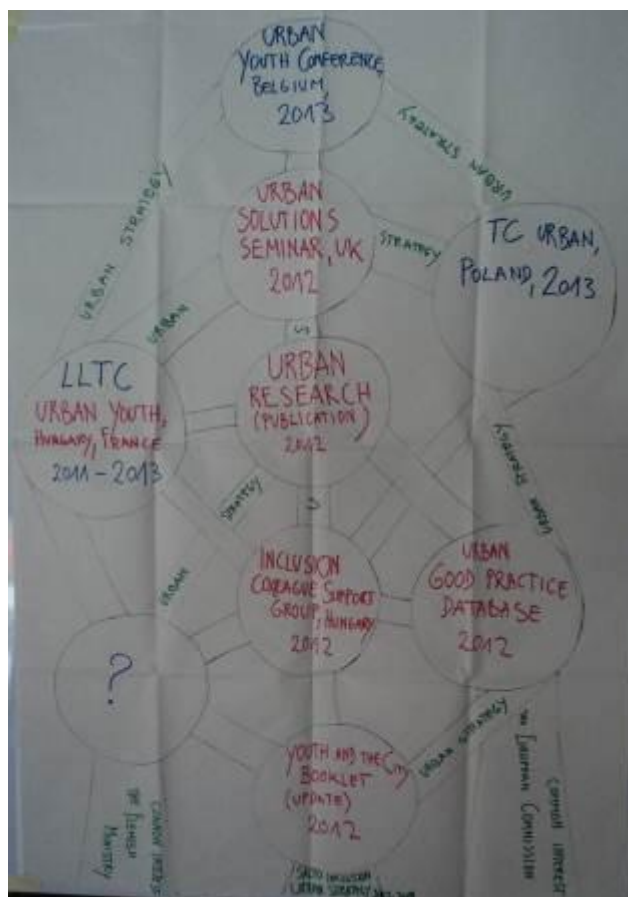 URBAN
YOUTH CONFERENCE,
BELGIUM,
2013
URBAN STRATEGY
URBAN STRATEGY
URBAN
SOLUTIONS
SEMINAR, UK
2012
STRATEGY
TC URBAN,
POLAND, 2013
URBAN
LLTC
URBAN YOUTH,
HUNGARY, FRANCE
2011-2013
URBAN
RESEARCH
(PUBLICATION)
2012
STRATEGY
URBAN
URBAN STRATEGY
INCLUSION
COLLEAGUE SUPPORT
GROUP, HUNGARY
2012
URBAN
GOOD PRACTICE
DATABASE
2012
?
YOUTH AND THE CITY
BOOKLET
(UPDATE)
2012
URBAN STRATEGY
COMMON INTEREST
THE FLEMISH
MINISTRY
COMMON INTEREST
THE EUROPEAN COMMISSION
SALTO INCLUSION
URBAN STRATEGY